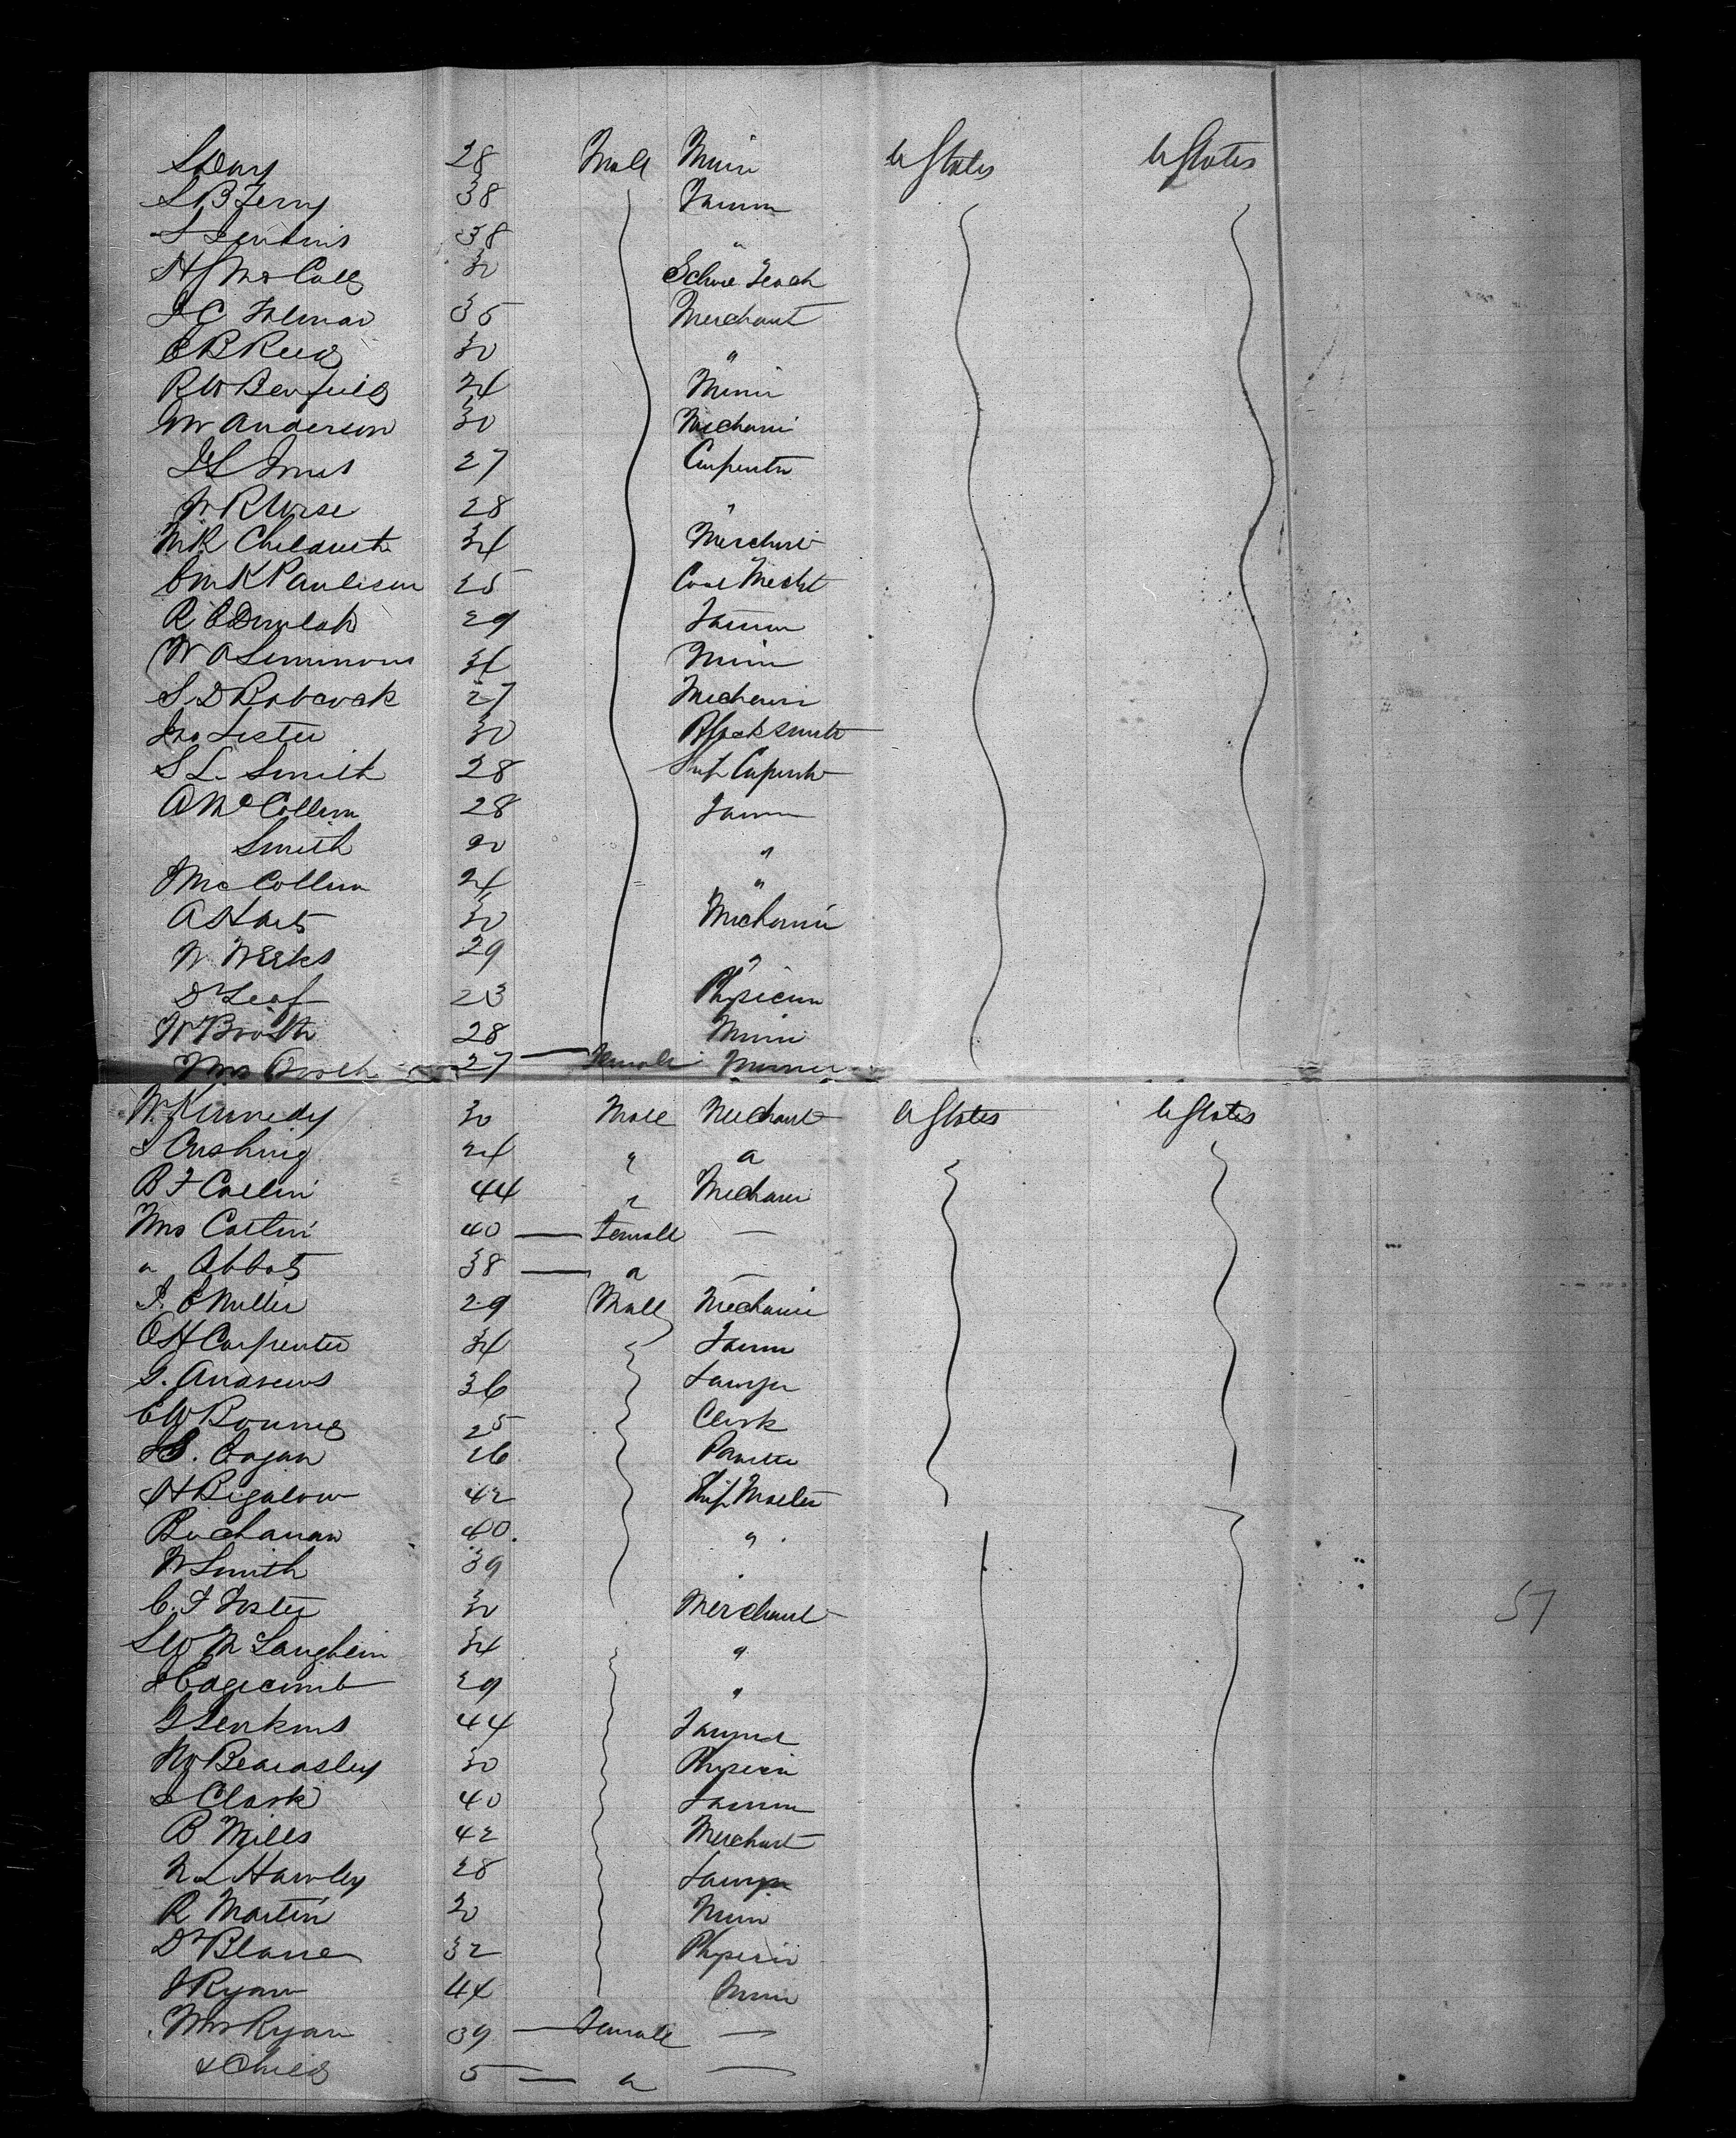 S Day 28 Male Miner U States U States
S B Ferry 38 Farmer
S Jenkins 38 "
H McCall 30 School Teach
J C 35 Merchant
C B Reed 30 "
R W Benfield 24 Miner
Wm Anderson 30 Mechani
J S 27 Carpenter
W R Wise 28 "
W R 34 Merchant
C McK Paulison 25 Coal Mecht
R C 29 Farmer
W A Simmons 34 Miner
S D Babcock 27 Mechani
Jno Lester 30 Blacksmith
S L. Smith 28 Carpenter
A McCollum 28 Farmer
Smith 20 "
J McCollum 24 "
A Hart 30 Mechanic
W Weeks 29 "
Dr Leaf 23 Physician
W Booth 28 Miner
Mrs Booth 27 Female
W. Kennedy 30 Male Mechant U States U States
J Cushing 24 " "
B F Catlin 44 " Mechani
Mrs Catlin 40 Female —
" Abbot 38 " —
J. C Miller 29 Male Mechanic
O H Carpenter 34 Farmer
G. Andrews 36 Lawyer
C W Bourne 25 Clerk
Cogan 26 Painter
H Bigalow 42 Ship Master
Buchanan 40. "
W Smith 39 "
C. F Foster 30 Merchant
S W McLaughlin 34 "
Edgecomb 29 "
J Jenkins 44
W Beardsley 30 Physician
S Clark 40 Farmer
B Mills 42 Merchant
N L Hawley 28 Lawyer
R Martin 20 Miner
Dr Blane 32 Physician
J Ryan 44 Miner
57
Mrs Ryan 39 Female —
& Child 5 " —